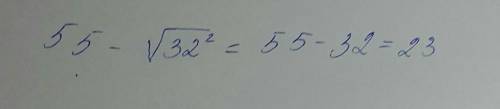 55 - √32² = 55 - 32 = 23